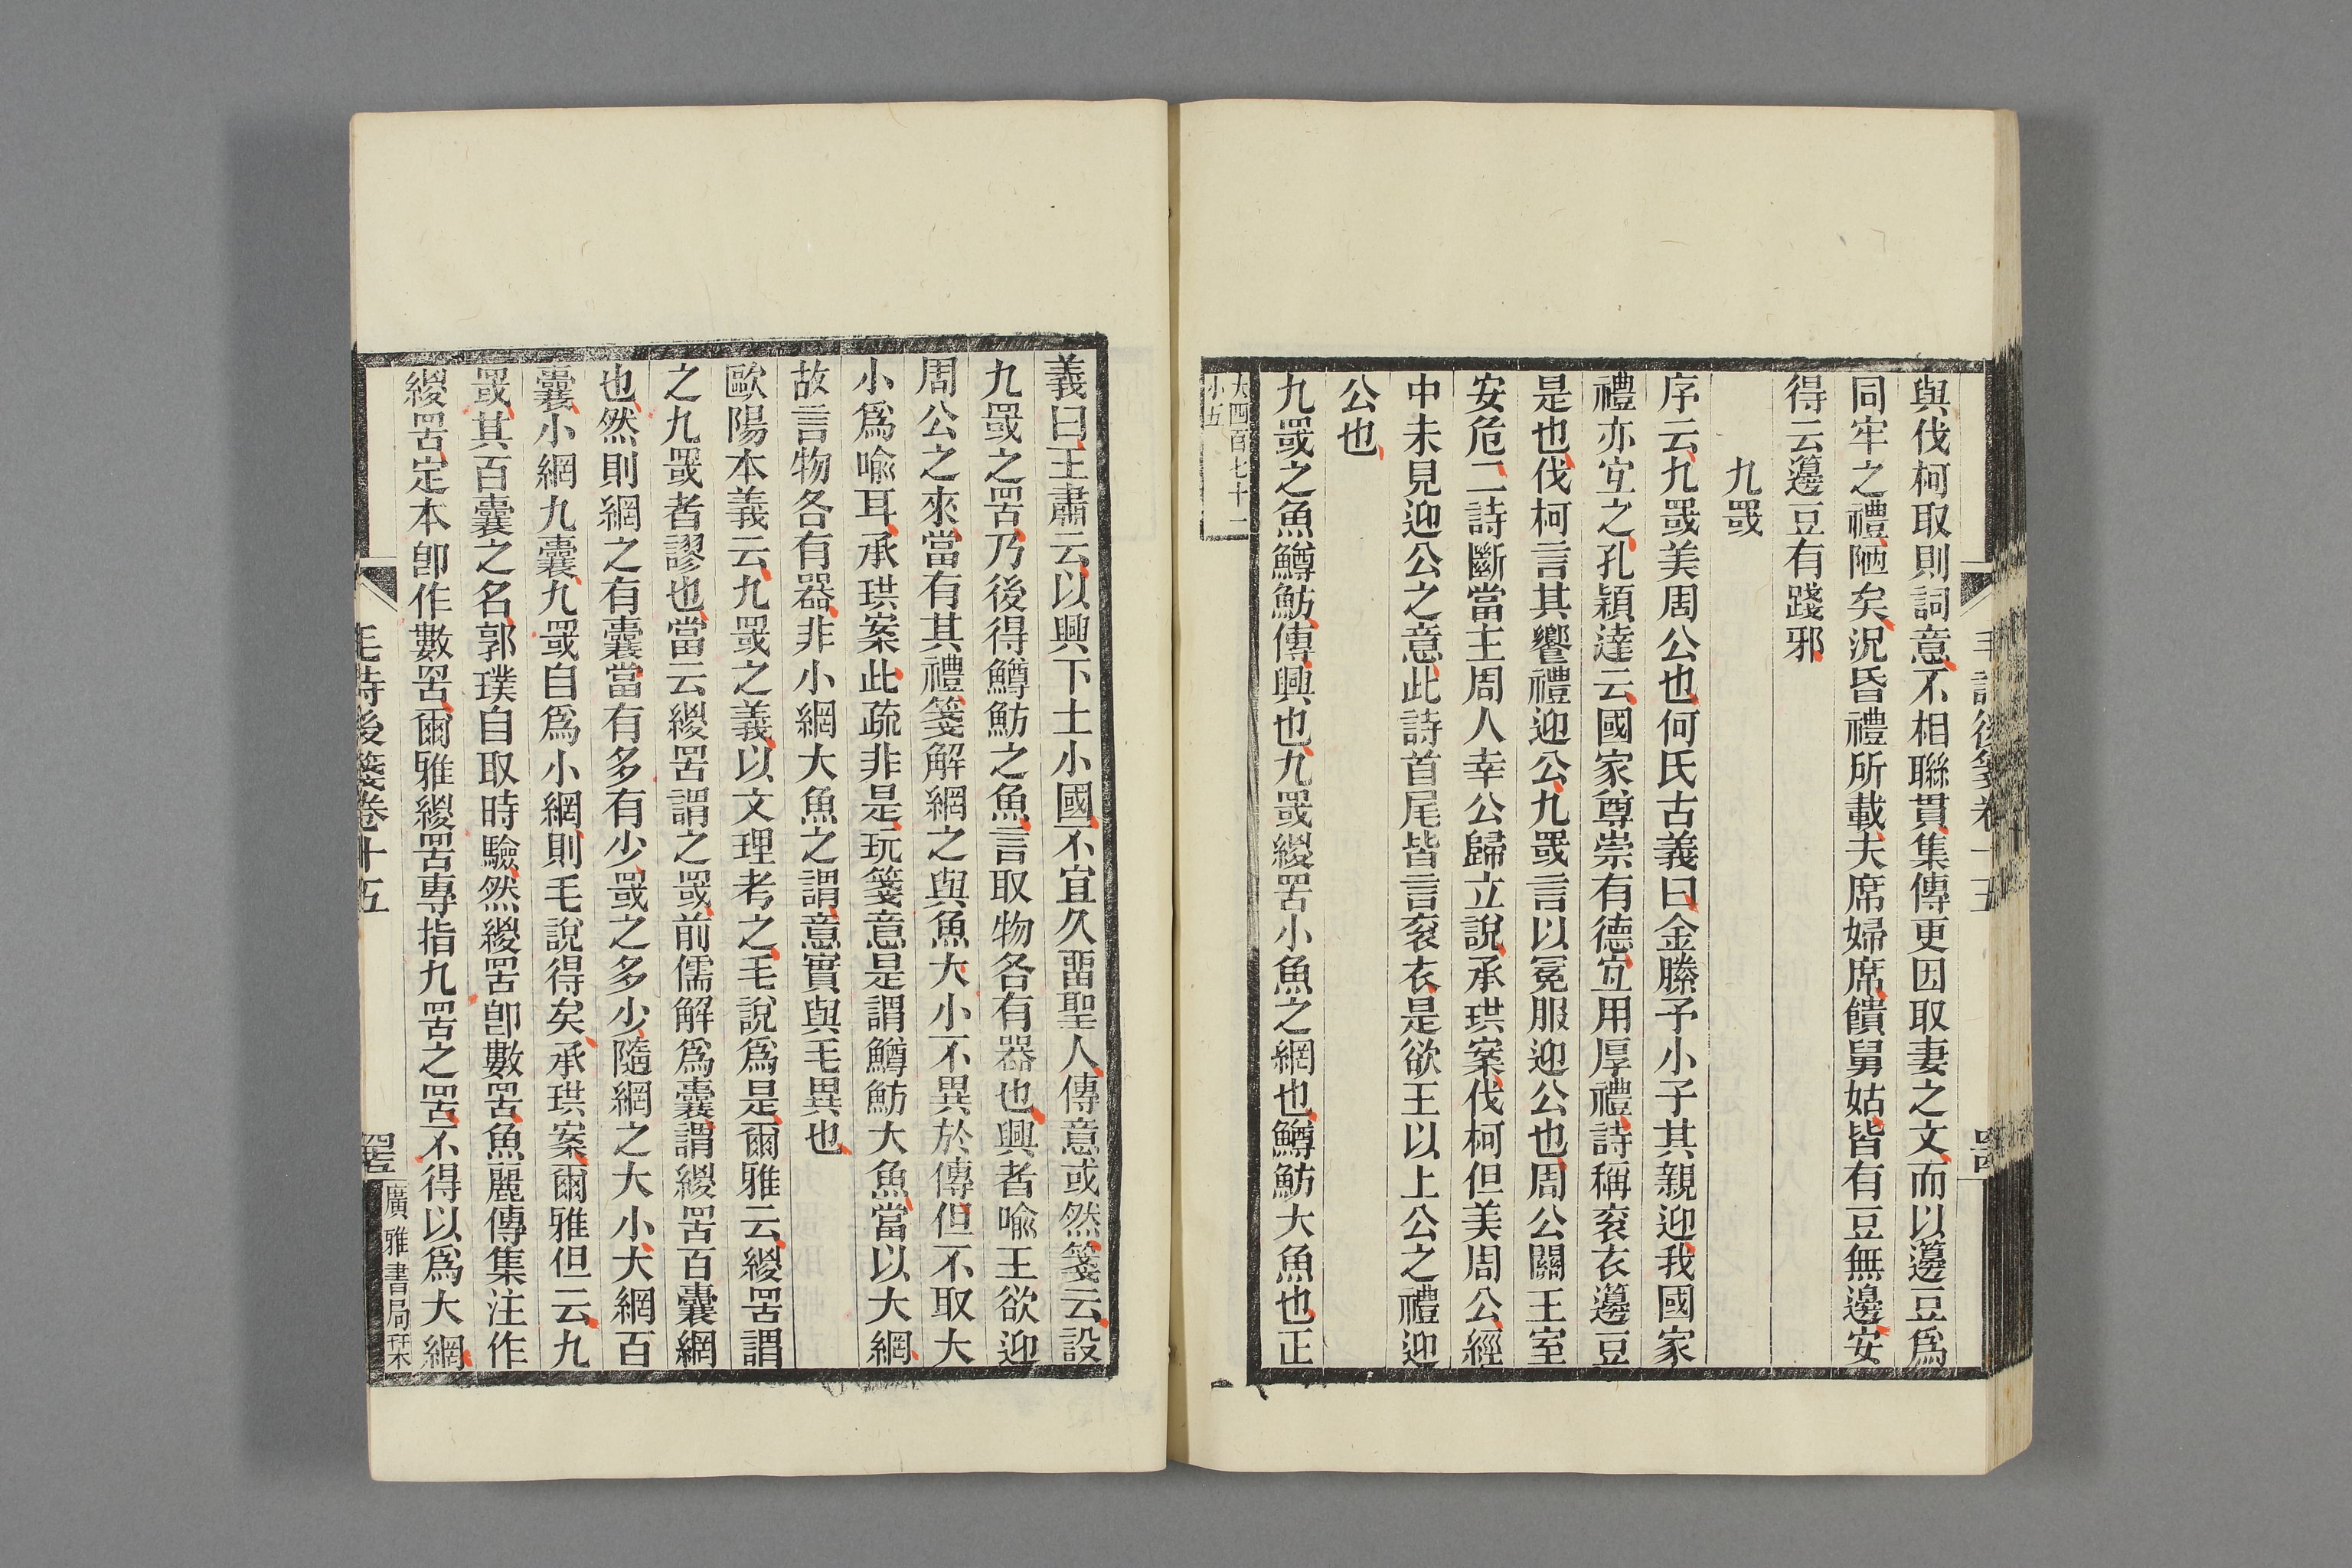 毛詩後箋卷十五
與伐柯取則詞意不相聯貫集傳更因取妻之文而以籩豆爲
同牢之禮陋矣況昏禮所載夫席婦席饋舅姑皆有豆無籩安
得云籩豆有踐邪
九罭
序云九罭美周公也何氏古義曰金縢予小子其親迎我國家
禮亦宐之孔穎達云國家尊崇有德宐用厚禮詩稱衮衣籩豆
是也伐柯言其饗禮迎公九罭言以冕服迎公也周公關王室
安危二詩斷當主周人幸公歸立說承珙案伐柯但美周公經
中未見迎公之意此詩首尾皆言衮衣是欲王以上公之禮迎
公也
九罭之魚鱒魴傳興也九罭緵罟小魚之網也鱒魴大魚也正
大四百七十二
小五
義曰王肅云以興下土小國不宜久畱聖人傳意或然箋云設
九罭之罟乃後得鱒魴之魚言取物各有器也興者喻王欲迎
周公之來當有其禮箋解網之與魚大小不異於傳但不取大
小爲喻耳承珙案此疏非是玩箋意是謂鱒魴大魚當以大網
故言物各有器非小網大魚之謂意實與毛異也
歐陽本義云九罭之義以文理考之毛說爲是爾雅云緵罟謂
之九罭者謬也當云緵罟謂之罭前儒解爲囊謂緵罟百囊網
也然則網之有囊當有多有少罭之多少隨網之大小大網百
囊小網九囊九罭自爲小網則毛說得矣承珙案爾雅但云九
罭其百囊之名郭璞自取時驗然緵罟卽數罟魚麗傳集注作
緵罟定本卽作數罟爾雅緵罟專指九罟之罟不得以爲大網
毛詩後箋卷十五
廣雅書局栞